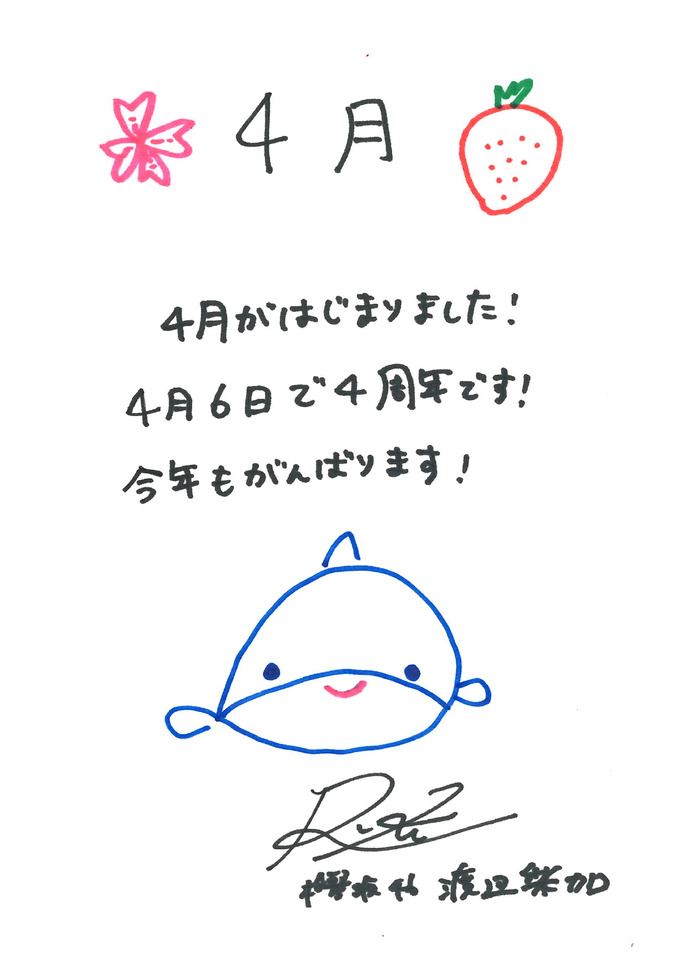 4月
4月がはじまりました!
4月6日で4周年です!
今年もがんばります!
欅坂46 渡辺梨加